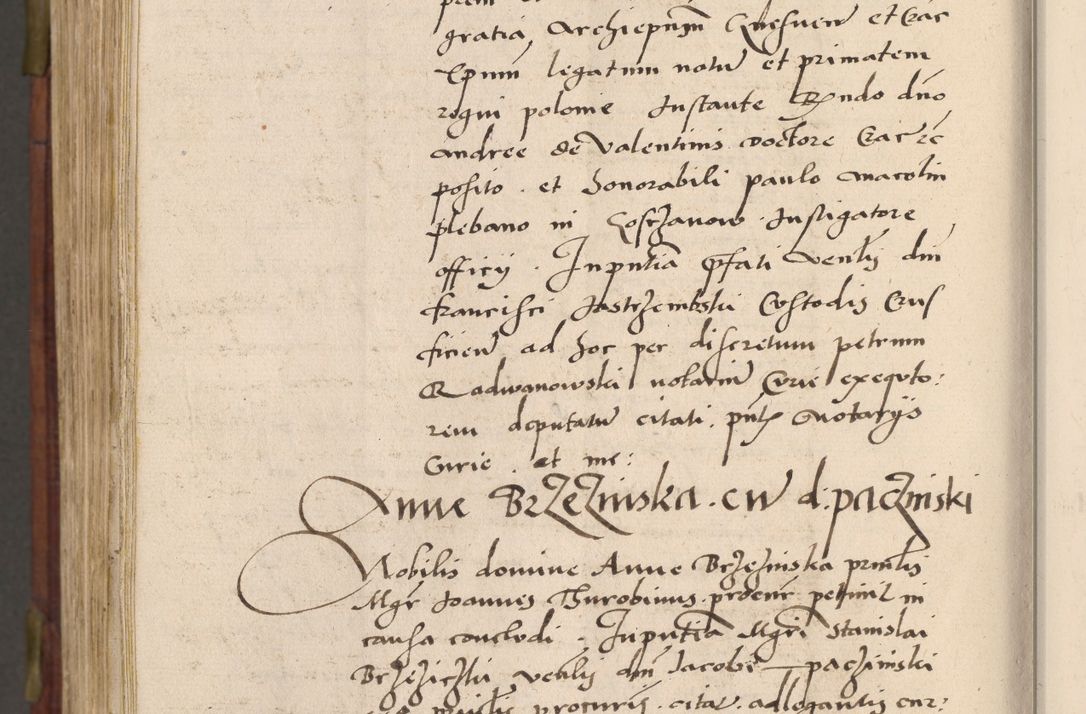 gratia Archiepum Gnesnen et Crac
Epum legatum natu et primatem
regni polonie Instante Rndo dno
andree de Valentinis doctore Crac
posito et honorabili paulo
plebano in Instigatore
officij . In pntia pfati Venlis dni
francisci Jastrzembski Custodis Crus
ficien ad hoc per discretum petrum
Radwanowski notariu Curie exequto:
rem deputatu citati . pntz Notarijs
Curie . et me:
Anne BrzeZinska . cu d: paczinski
Nobilis domine Anne Brzezinska prinlis
Mgr Joannes Thurobinus procur petiit in
causa concludi . In pntia Mgri Stanislai
Brzeziczki venlis dni Jacobi paczinski
procuris . citat . allegantis cur: